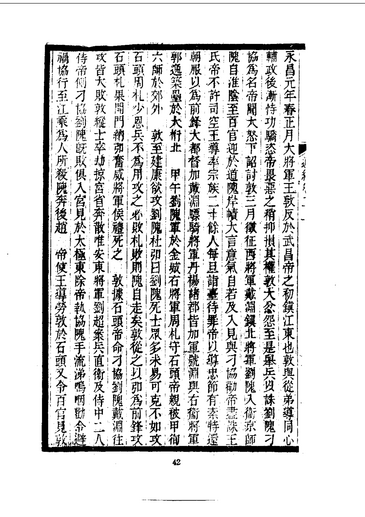 永昌元年春正月大將軍王敦反於武昌帝之初鎮江東也敦與從弟導同心
輔政後漸恃功驕恣帝畏惡之稍抑損其權敦大忿怨至是舉兵以誅劉隗刁
協為名帝聞大怒下詔討敦三月徵征西將軍戴淵鎮北將軍劉隗入衛京師
隗自淮陰至百官迎於道隗岸幘大言意氣自若及入見與刁協勸帝盡誅王
氏帝不許司空王導帥宗族二十餘人每旦詣臺待罪帝以導忠節有素特還
朝服以為前鋒大都督加戴淵驃騎將軍丹楊諸郡皆加軍號淵與右衛將軍
郭逸築壘於大桁北 甲午劉隗軍於金城右將軍周札守石頭帝親被甲御
六師於郊外 敦至建康欲攻劉隗杜弘曰劉隗死士眾多未易可克不如攻
石頭周札少恩兵不為用攻之必敗札敗則隗自走矣敦從之以弘為前鋒攻
石頭札果開門納弘奮威將軍侯禮死之 敦據石頭帝命刁協劉隗戴淵往
攻皆大敗敦縱士卒劫掠宮省奔散唯安東將軍劉超案兵直衛及侍中二人
侍帝側刁協劉隗既敗俱入宮見於太極東除帝執協隗手流涕嗚咽勸令避
禍協行至江乘為人所殺隗奔後趙 帝使王導勞敦於石頭又令百官見敦
42